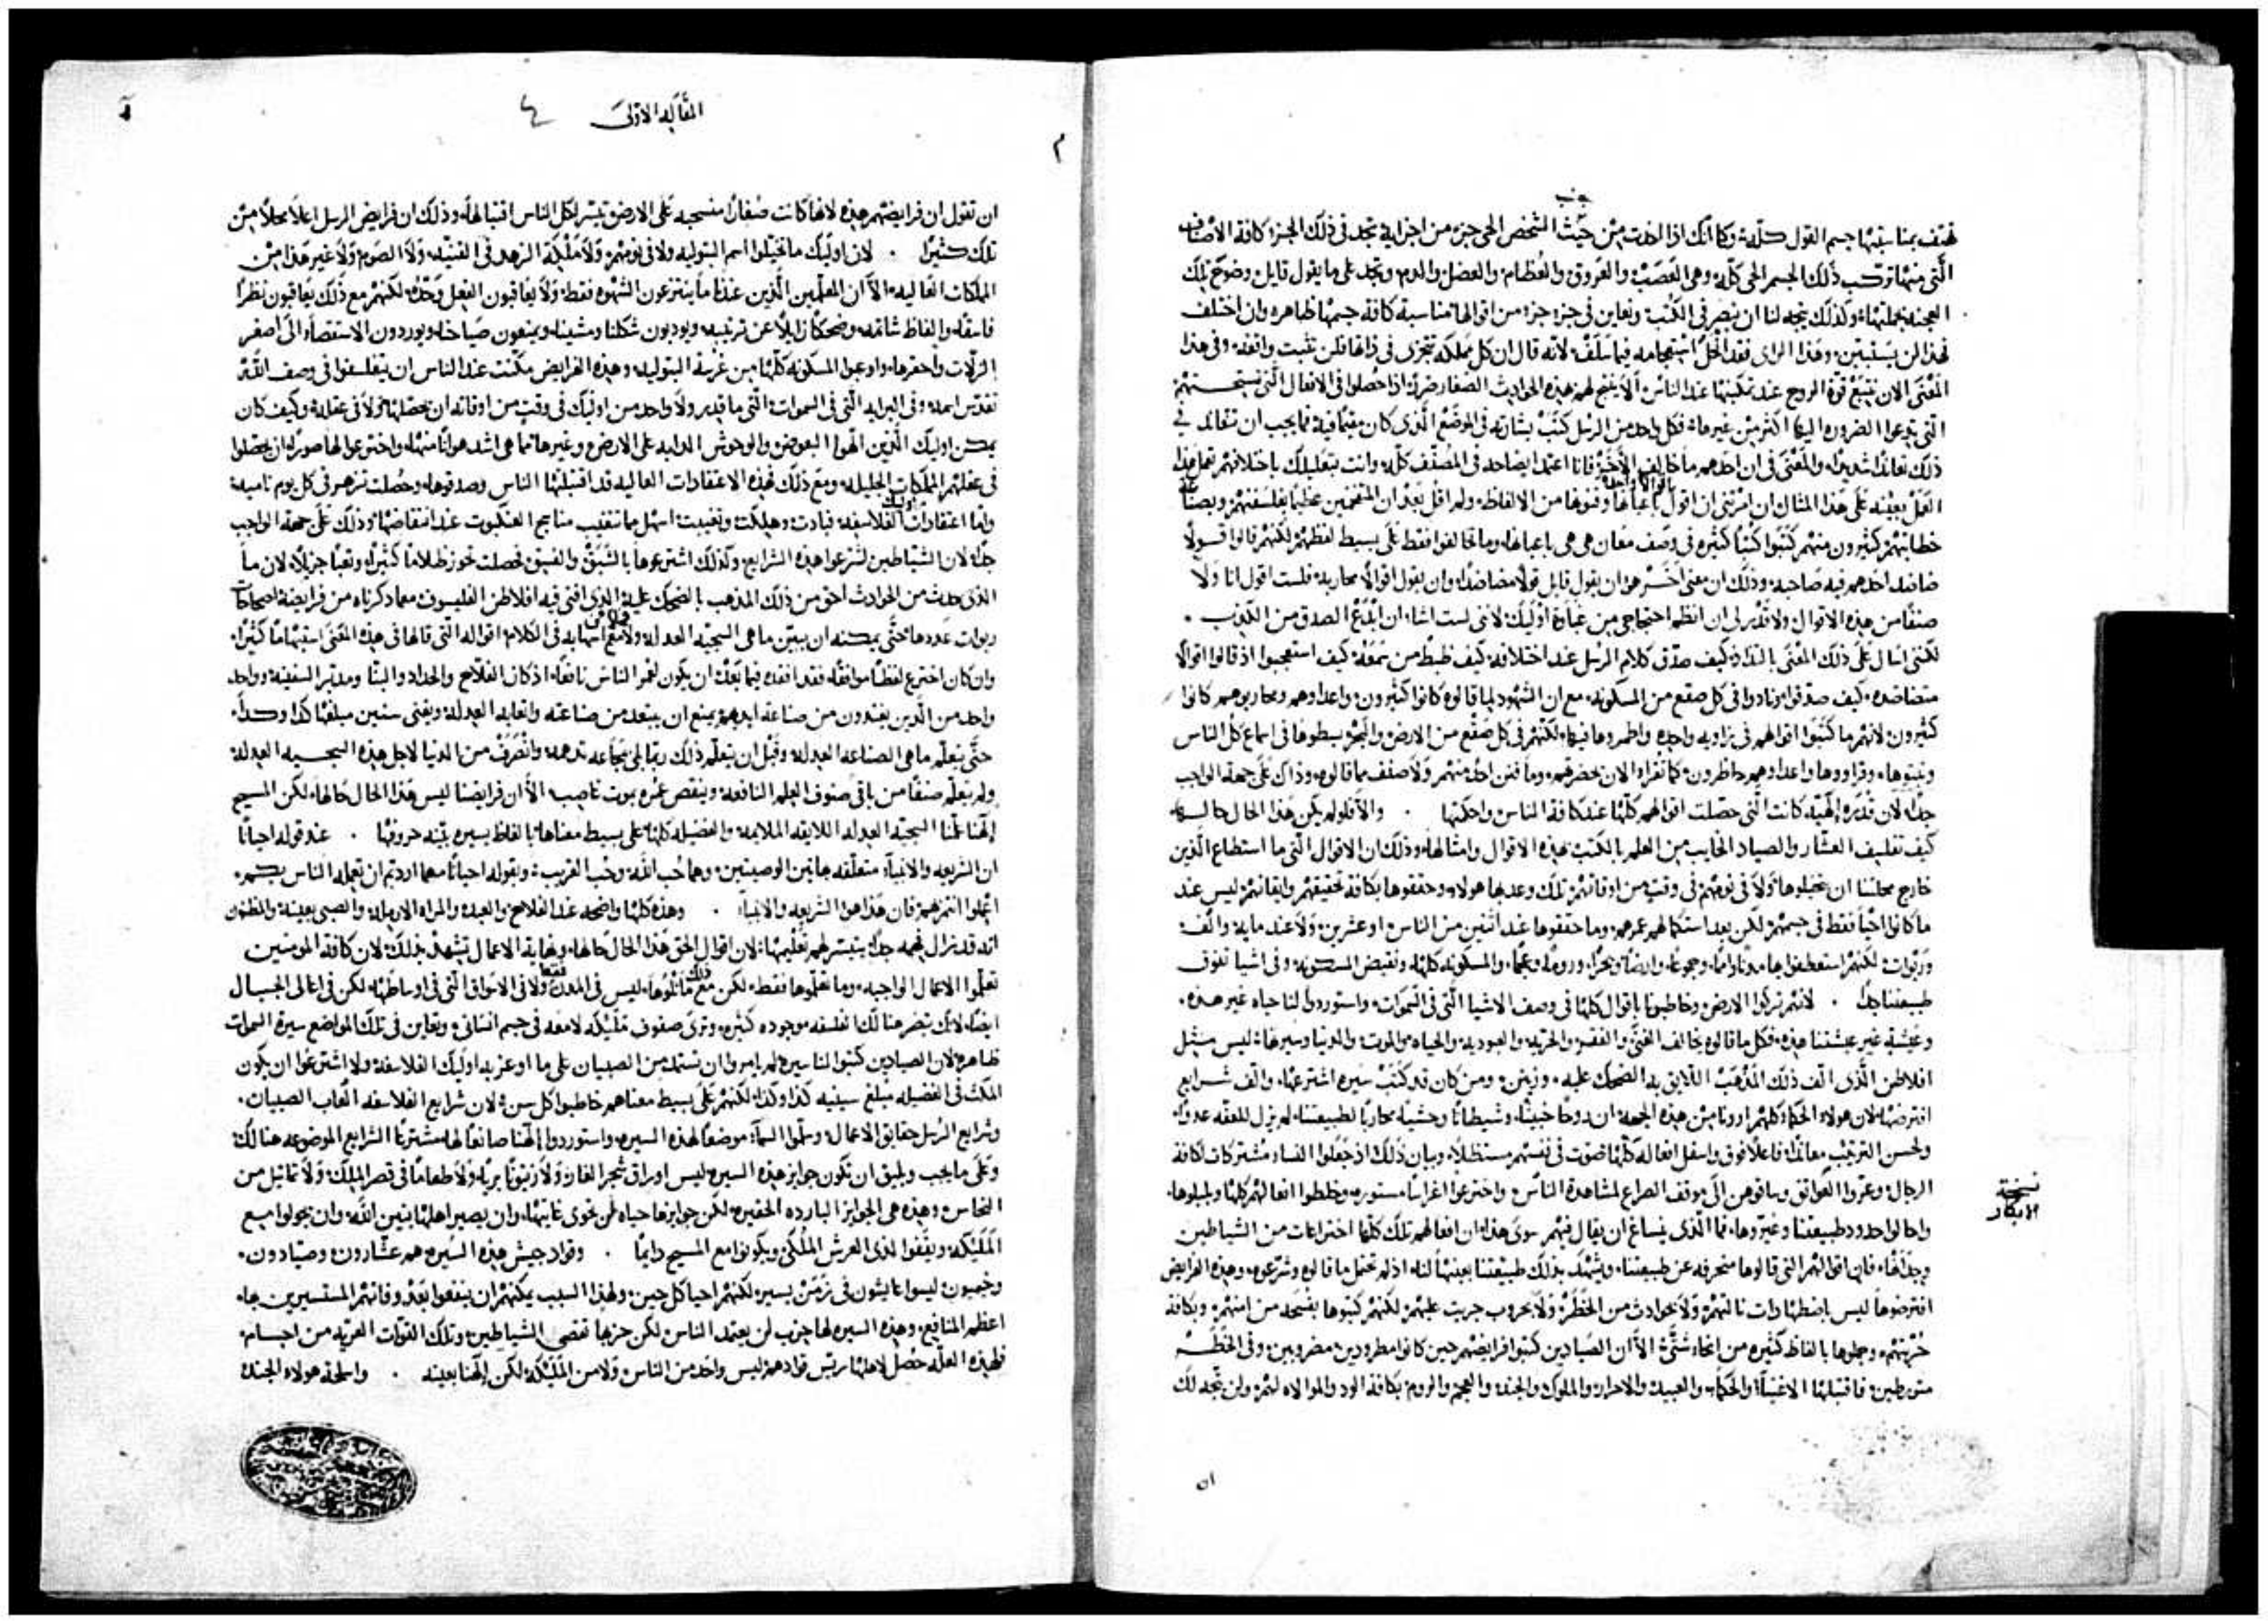 جنب
تهتف بمناسبتها جسم القول كله وكما انك اذا اخدت من حيث الشخص الحي جزء من اجزايه تجد في ذلك الجزء كافة الاصناف
التي منها تركب ذلك الجسم الحي كله وهي العصب والعروق والعظام والعضل والدم وتجد على ما يقول قايل وضوح تلك
العجنه بجملتها وكذلك يتجه لنا ان نبصر في الكتب ونعاين في جزء جزء من اقوالها مناسبة كافة جسمها ظاهره وان اختلف
فهذا لن يستبين وهذا الراي فقد انحل استعجامه فيما سلف لانه قال ان كل مملكه تتجزى في ذاتها فلن تثبت واقفه وفي هذا
المعنى الان تتبع قوة الروح عند تمكينها عند الناس الا ينتج لهم هذه الحوادث الصغار ضررا اذا حصلوا في الافعال التي تستحثهم
التي تدعوا الضروره اليها اكثر من غيرها فكل واحد من الرسل كتب بشارته في الموضع الذي كان مقيما فيه فما يجب ان تعاند في
ذلك عنادا شديدا والمعنى في ان احدهم ما خالف الاخر فانا اعتمد ايضاحه في المصنف كله وانت بتعليلك باختلافهم تعمل هذا
العمل بعينه على هذا المثال ان امرتني ان اقول باعيانها وفنونها من الالفاظ ولم اقل بعد ان المتفخمين عظيما بفلسفتهم وبصناعة
خطابتهم كثيرون منهم كتبوا كتبا كثيره في وصف معان هي هي باعيانها وما خالفوا فقط على بسيط لفظهم لكنهم قالوا قولا
ضادد احدهم فيه صاحبه وذلك ان معنى اخر هو ان يقول قايل قولا مضاددا وان يقول اقوالا محاربه فلست اقول انا ولا
صنفا من هذه الاقوال ولا قدر لي ان انظم احتجاجي من غباوة اوليك لانني لست اشاء ان ابدع الصدق من الكذب .
لكنني اسال على ذلك المعنى بالتداذ كيف صدق كلام الرسل عند اختلافه كيف ضبط من سمعه كيف استعجبوا اذ قالوا اقوالا
متضادده كيف صدقوا ونادوا في كل صقع من المسكونه مع ان الشهود لما قالوه كانوا كثيرون واعداوهم ومحاربوهم كانوا
كثيرون لانهم ما كتبوا اقوالهم في زاويه واحده واطمروها فيها لكنهم في كل صقع من الارض والبحر بسطوها في اسماع كل الناس
وثبتوها وقراوها واعداوهم حاظرون كما تقرا الان بحضرتهم وما فتن احد منهم ولا صنف مما قالوه وذاك على جهة الواجب
جدا لان قدره الهيه كانت التي حصلت اقوالهم كلها عند كافة الناس واحكمتها . والا فلو لم يكن هذا الحال حاله
كيف تفلسف العشار والصياد الخايب من العلم بالكتب هذه الاقوال وامثالها وذلك ان الاقوال التي ما استطاع الذين
خارج محلتنا ان يتخيلوها ولا في نومهم في وقت من اوقاتهم تلك وعد بها هولاء وحققوها بكافة تحقيقهم وايقانهم ليس عند
ما كانوا احيا فقط في جسمهم لكن بعد استكمالهم عمرهم وما حققوها عند اثنين من الناس او عشرين ولا عند مايه والف
وربوات لكنهم استعطفوا بها مدنا وامما وجموعا وارضا وبحرا وروما وعجما والمسكونه كلها ونقيض المسكونه وفي اشيا تفوق
طبيعتنا جدا . لانهم تركوا الارض وخاطبونا باقوال كلها في وصف الاشيا التي في السموات واستوردوا لنا حياه غير هذه .
وعيشة غير عيشتنا هذه فكل ما قالوه يخالف الغنى والفقر والحريه والعبوديه والحياه والموت والدنيا وسيرها ليس مثل
افلاطن الذي الف ذلك المذهب اللايق به الضحك عليه وزينن ومن كان قد كتب سيره اشترعها والف شرايع
افترضها لان هولاء الحكما كلهم ارونا من هذه الجهه ان روحا خبيثا وشيطانا وحشيا محاربا لطبيعتنا لم يزل للعفه عدوا
ولحسن الترتيب معاندا فاعلا فوق واسفل افعاله كلها صوت في نفسهم مستظلا وبيان ذلك اذ جعلوا النساء مشتركات لكافة
الرجال وعروا العواتق وساقوهن الى موقف الصراع لمشاهدة الناس واخترعوا اعراسا مستوره وخلطوا افعالهم كلها وبلبلوها.
نسخة
الابكار
واحالوا حدود طبيعتنا وغيروها فما الذي ينساغ ان يقال فيهم سوى هذا ان افعالهم تلك كلها اختراعات من الشياطين
وجدناها فان اقوالهم التي قالوها منحرفه عن طبيعتنا ويشهد بذلك طبيعتنا بعينها لنا اذ لم تحتمل ما قالوه وشرعوه وهذه الفرايض
افترضوها ليس باضطهادات نالتهم ولا بحوادث من الخطر ولا بحروب جربت عليهم لكنهم كتبوها بفسحه من امنهم وبكافة
حريتهم وجملوها بالفاظ كثيره من انحاء شتى الا ان الصيادين كتبوا فرايضهم حين كانوا مطرودين مضروبين وفي الخطر
متورطين فاقتبلها الاغنيا والحكما والعبيد والاحرار والملوك والجند والعجم والروم بكافة الود والموالاه لهم ولن تتجه لك
ان
المقالة الاولى
٤
م
ان تقول ان فرايضهم هذه لانها كانت صغارا منسحبه على الارض تيسر لكل الناس اقتبالها وذلك ان فرايض الرسل اعلا محلا من
تلك كثيرا . لان اوليك ما تخيلوا اسم البتوليه ولا في نومهم ولا ملكة الزهد في القنيه ولا الصوم ولا غير هذا من
الملكات العاليه الا ان المعلمين الذين عندنا ما ينتزعون الشهوه فقط ولا يعاقبون الفعل وحده لكنهم مع ذلك يعاقبون نظرا
فاسقا والفاظ شاتمه وضحكا زايلا عن ترتيبه ويودبون شكلنا ومشينا ويمنعون صياحنا ويوردون الاستقصاء الى اصغر
الزلات واحقرها واوعبوا المسكونه كلها من غرسة البتوليه وهذه الفرايض مكنت عند الناس ان يتفلسفوا في وصف الله
تقدس اسمه وفي البرايه التي في السموات التي ما قدر ولا واحد من اوليك في وقت من اوقاته ان يحصلها ولا في عقله وكيف كان
يمكن اوليك الذين الهوا البعوض والوحوش الدابه على الارض وغيرها مما هي اشد هوانا منها واخترعوا لها صورا ان يحصلوا
في عقلهم الملكات الجليله ومع ذلك فهذه الاعتقادات العاليه قد اقتبلتها الناس وصدقوها وحصلت تزهر في كل يوم ناميه
واما اعتقادات اوليك الفلاسفه فبادت وهلكت وتغيبت اسهل مما تتغيب مناسج العنكبوت عند انتقاضها وذلك على جهة الواجب
جدا لان الشياطين شرعوا هذه الشرايع ولذلك اشترعوها بالشبق والفسق فحصلت تحوز ظلاما كثيرا وتعبا جزيلا لان ما
الذي حدث من الحوادث احق من ذلك المذهب بالضحك عليه الذي افنى فيه افلاطن الفليسوف مما ذكرناه من فرايضه اصحاحات
ربوات عددها حتى يمكنه ان يبين ما هي السجيه العدله ولا مع اسهابه في الكلام اقواله التي قالها في هذا المعنى استبهاما كثيرا
وان كان اخترع لفظا موافقا فقد افقده فيما بعد ان يكون لعمر الناس نافعا اذ كان الفلاح والحداد والبنا ومدبر السفينه وواحد
واحد من الذين يغتدون من صناعة ايديهم يمنع ان يبتعد من صناعته واتعابه العدله ويفني سنين مبلغها كذا وكذا
حتى يتعلم ما هي الصناعه العدله وقبل ان يتعلم ذلك ربما بلي بمجاعه تدهمه وانصرف من الدنيا لاجل هذه السجيه العدله
ولم يتعلم صنفا من باقي صنوف العلم النافعه وينقص عمره بموت غاصب الا ان فرايضنا ليس هذا الحال حالها لكن المسيح
الهنا علمنا السجيه العدله اللايقه الملايمه والفضيله كلها على بسيط معناها بالفاظ يسيره بينه حروفها . عند قوله احيانا
ان الشريعه والانبياء متعلقه بهاتين الوصيتين وهما حب الله وحب القريب وبقوله احيانا مهما اردتم ان يعمله الناس بكم
اعملوا انتم بهم فان هذا هو الشريعه والانبياء . وهذه كلها واضحه عند الفلاح والعبد والمراه الارمله والصبي بعينه والمظنون
انه قد نزل فهمه جدا يتيسر لهم تعليمها لان اقوال الحق هذا الحال حالها ونهاية الاعمال تشهد بذلك لان كافة المومنين
تعلموا الاعمال الواجبه وما تعلموها فقط لكن مع ذلك ماثلوها ليس في المدن فقط ولا في الاسواق التي في اوساطها لكن في اعالي الجبال
ايضا لانك تبصر هنالك الفلسفه موجوده كثيره وترى صفوف مليكه لامعه في جسم انساني وتعاين في تلك المواضع سيرة السموات
ظاهره لان الصيادين كتبوا لنا سيره لم يامروا ان تستمد من الصبيان على ما اوعز به اوليك الفلاسفه ولا اشترعوا ان يكون
المكث في الفضيله مبلغ سنيه كذا وكذا لكنهم على بسيط معناهم خاطبوا كل سن لان شرايع الفلاسفه العاب الصبيان .
وشرايع الرسل حقايق الاعمال وسلموا السماء موضعا لهذه السيره واستوردوا الهنا صانعا لها مشترعا الشرايع الموضوعه هنالك
وعلى ما يجب ويليق ان تكون جوايز هذه السيره ليس اوراق شجر الغار ولا زيتونا بريا ولا طعاما في قصر الملك ولا تماثيل من
النحاس وهذه هي الجوايز البارده الحقيره لكن جوايزها حياه لن تحوي غايتها وان يصير اهلها بنين الله وان يجولوا مع
المليكه ويقفوا لدى العرش الملكي ويكونوا مع المسيح دايما . وقواد جيش هذه السيره هم عشارون وصيادون .
وخيميون ليسوا عايشون في زمن يسير لكنهم احيا كل حين ولهذا السبب يمكنهم ان ينفعوا بعد وفاتهم المستسيرين بها
اعظم المنافع وهذه السيره لها حرب لن يعتمد الناس لكن حربها تقصي الشياطين وتلك القوات العريه من اجسام.
فلهذه العله حصل لاهلها ريس قوادهم ليس واحد من الناس ولا من المليكه لكن الهنا بعينه . واسلحة هولاء الجند